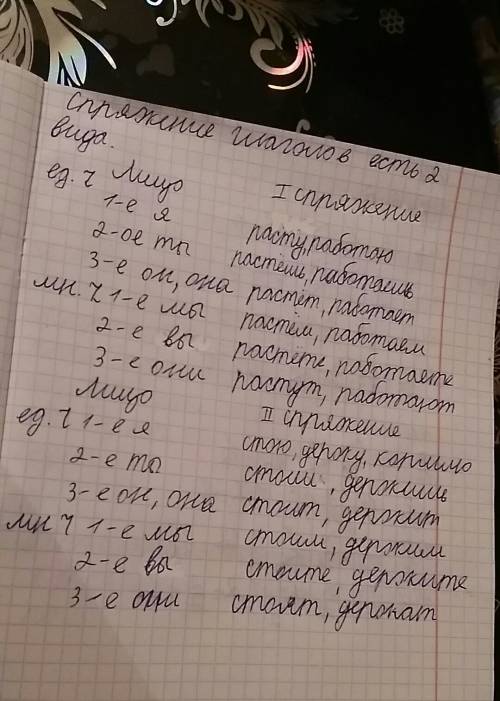 Спряжение глаголов есть 2
вида.
ед. ч Лицо I спряжение
1-е я расту, работаю
2-ое ты растёшь, работаешь
3-е он, она растёт, работает
мн. ч 1-е мы растём, работаем
2-е вы растёте, работаете
3-е они растут, работают
Лицо II спряжение
ед. ч 1-е я стою, держу, кормлю
2-е ты стоиш, держишь
3-е он, она стоит, держит
мн ч 1-е мы стоим, держим
2-е вы стоите, держите
3-е они стоят, держат